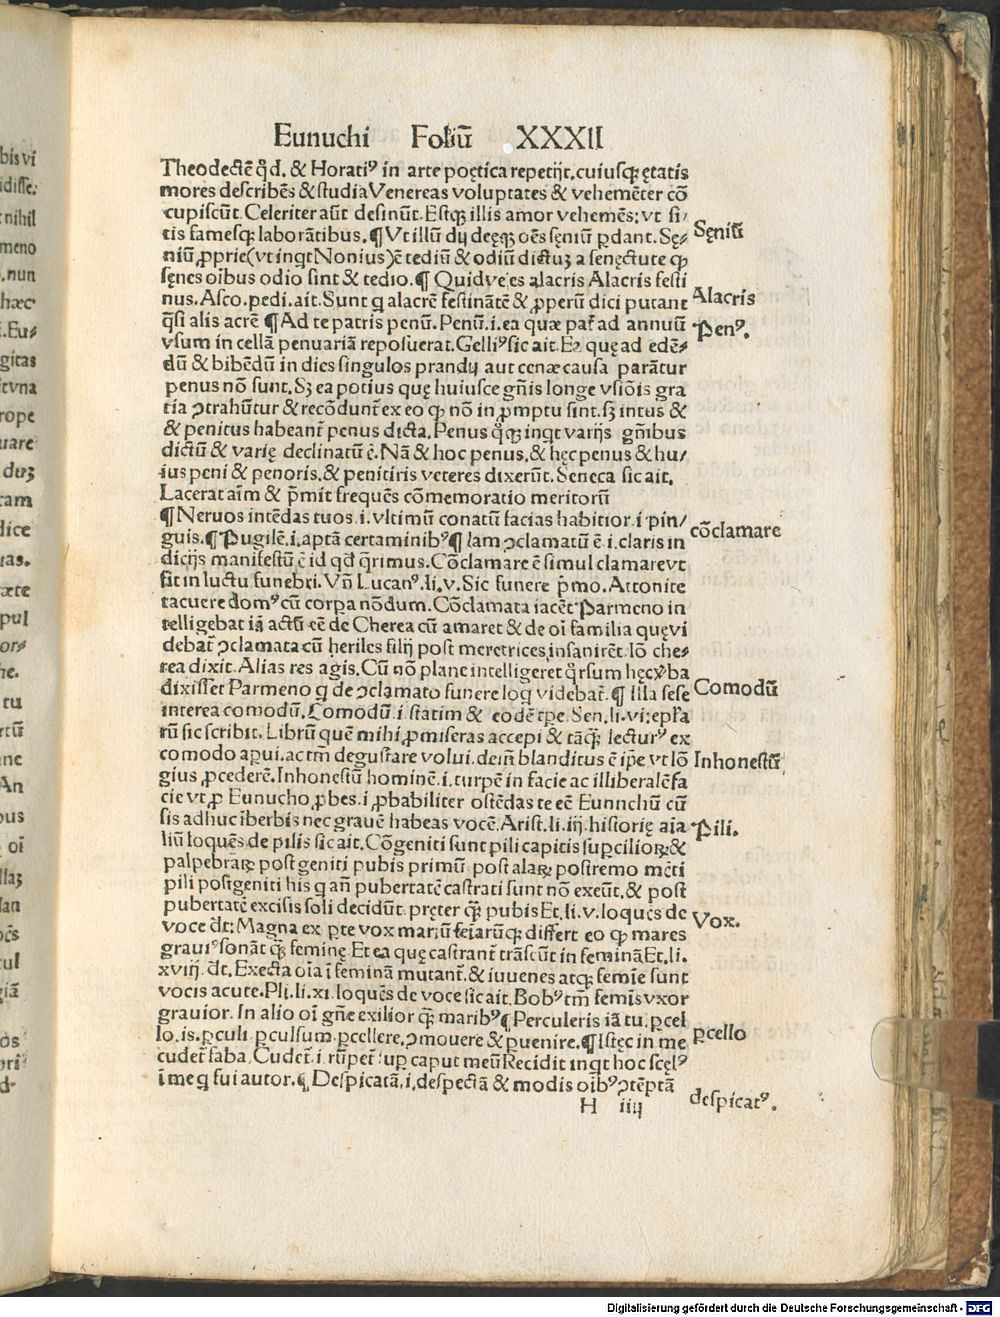 Eunuchi Foliū XXXII
Theodectē qd̄. & Horatiꝰ in arte poętica repetijt. cuiusqꝫ ętatis
mores describēs & studia Venereas voluptates & vehemēter cō
cupiscūt. Celeriter aūt desinūt. Estqꝫ illis amor vehemēs; vt si/
tis famesqꝫ laborātibus. ¶ Vt illū dij deęqꝫ oēs sęniū ꝑdant. Sę⸗
niū ꝓprie (vt inqt Nonius) ē tediū & odiū dictuꝫ a senęctute ꝙ
sęnes oībus odio sint & tedio. ¶ Quidve es alacris Alacris festi
nus. Asco. pedi. ait. Sunt q alacrē festinātē & ꝓperū dici putant
q̄si alis acrē ¶ Ad te patris penū. Penū. i. ea quæ pat̄ ad annuū
vsum in cellā penuariā reposuerat. Gelliꝰ sic ait. Ea quę ad edē⸗
dū & bibēdū in dies singulos prandij aut cenæ causa parātur
penus nō sunt. Sꝫ ea potius quę huiusce gn̄is longe vsiōis gra
tia ꝯtrahūtur & recōdunt̄ ex eo ꝙ nō in ꝓmptu sint. sꝫ intus &
& penitus habeant̄ penus dicta. Penus q̄qꝫ inqt varijs gn̄ibus
dictū & varię declinatū ē. Nā & hoc penus. & hęc penus & hu/
ius peni & penoris. & penitiris veteres dixerūt. Seneca sic ait.
Lacerat aīm & p̄mit frequēs cōmemoratio meritorū
¶ Neruos intēdas tuos. i. vltimū conatū facias habitior. i pin/
guis. ¶ Pugilē. i. aptā certaminibꝰ ¶ Iam ꝯclamatū ē. i. claris in
dicijs manifestū ē id qd̄ q̄rimus. Cōclamare ē simul clamare vt
fit in luctu funebri. Vn̄ Lucanꝰ. li. v. Sic funere p̄mo. Attonite
tacuere domꝰ cū corpa nōdum. Cōclamata iacēt Parmeno in
telligebat iā actū eē de Cherea cū amaret & de oī familia quę vi
debat̄ ꝯclamata cū heriles filij post meretrices insanirēt. Iō che⸗
rea dixit. Alias res agis. Cū nō plane intelligeret q̄rsum hęc v̄ba
dixisset Parmeno q de ꝯclamato funere loq videbat̄. ¶ Illa sese
interea comodū. Comodū. i statim & eodē tꝑe. Sen. li. vi; epr̄a
rū sic scribit. Librū quē mihi ꝓmiseras accepi & tāqꝫ̄ lecturꝰ ex
comodo apui. ac tm̄ degustare volui. dein̄ blanditus ē ipē vt lō
gius ꝓcederē. Inhonestū hominē. i. turpē in facie ac illiberalē fa
cie vt ꝓ Eunucho ꝓbes. i ꝓbabiliter ostēdas te eē Eunnchū cū
sis adhuc īberbis nec grauē habeas vocē. Arist. li. iij. historię aīa
liū loquēs de pilis sic ait. Cōgeniti sunt pili capitis suꝑcilioꝝ &
palpebraꝝ postgeniti pubis primū post alaꝝ postremo mēti
pili postgeniti his q an̄ pubertatē castrati sunt nō exeūt. & post
pubertatē excisis soli decidūt. pręter q̄ꝫ pubis Et. li. v. loquēs de
voce d̄t: Magna ex ꝑte vox mariū feīarūqꝫ differt eo ꝙ mares
grauiꝰ sonāt q̄ꝫ feminę. Et ea quę castrant̄ trāscūt in feminā Et. li.
xviij. d̄t. Execta oīa ī feminā mutant̄. & iuuenes atqꝫ femīe sunt
vocis acute. Pli. li. xi. loquēs de voce sic ait. Bobꝰ tm̄ femīs vxor
grauior. In alio oī gn̄e exilior q̄ꝫ maribꝰ ¶ Perculeris iā tu. ꝑcel
lo. is. ꝑculi. ꝑculsum. ꝑcellere. ꝯmouere & ꝑuenire. ¶ Istęc in me
cudet̄ faba. Cudet̄. i. rūpet̄ sup caput meū Recidit inqt hoc scelꝰ
ī me q fui autor. ¶ Despicatā. i. despectā & modis oībꝰ ꝯtēptā
H iiij
Sęniū
Alacris
Penꝰ.
cōclamare
Comodū
Inhonestū
Pili.
Vox.
ꝑcello
despicatꝰ.
Digitalisierung gefördert durch die Deutsche Forschungsgemeinschaft - DFG